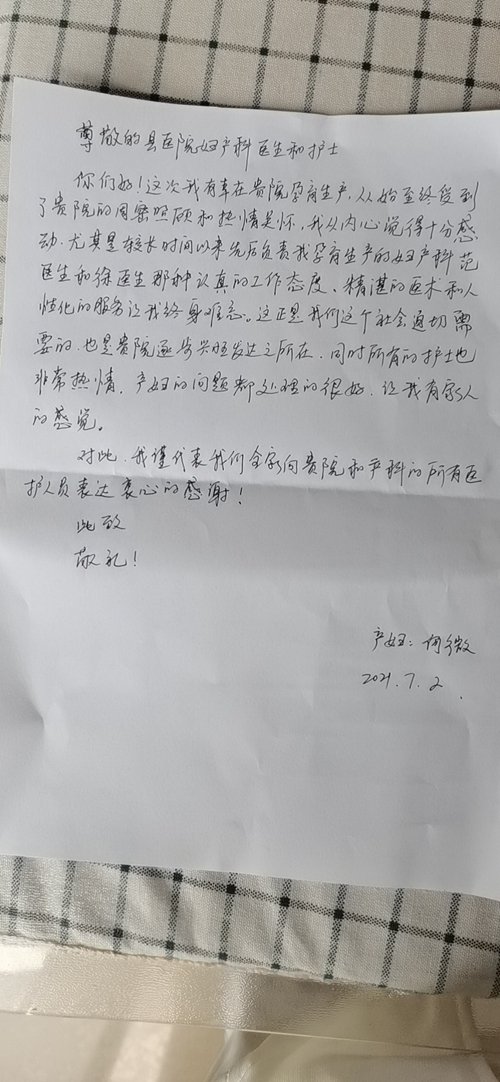 尊敬的县医院妇产科医生和护士
你们好！这次我有幸在贵院孕育生产，从始至终受到
了贵院的周密照顾和热情关怀，我从内心觉得十分感
动.尤其是较长时间以来先后负责我孕育生产的妇产科范
医生和徐医生那种认真的工作态度、精湛的医术和人
性化的服务让我终身难忘。这正是我们这个社会迫切需
要的.也是贵院逐步兴旺发达之所在.同时所有的护士也
非常热情，产妇的问题都处理的很好.让我有家人
的感觉。
对此.我谨代表我们全家向贵院和产科的所有医
护人员表达衷心的感谢！
此致
敬礼！
产妇：何微
2021.7.2